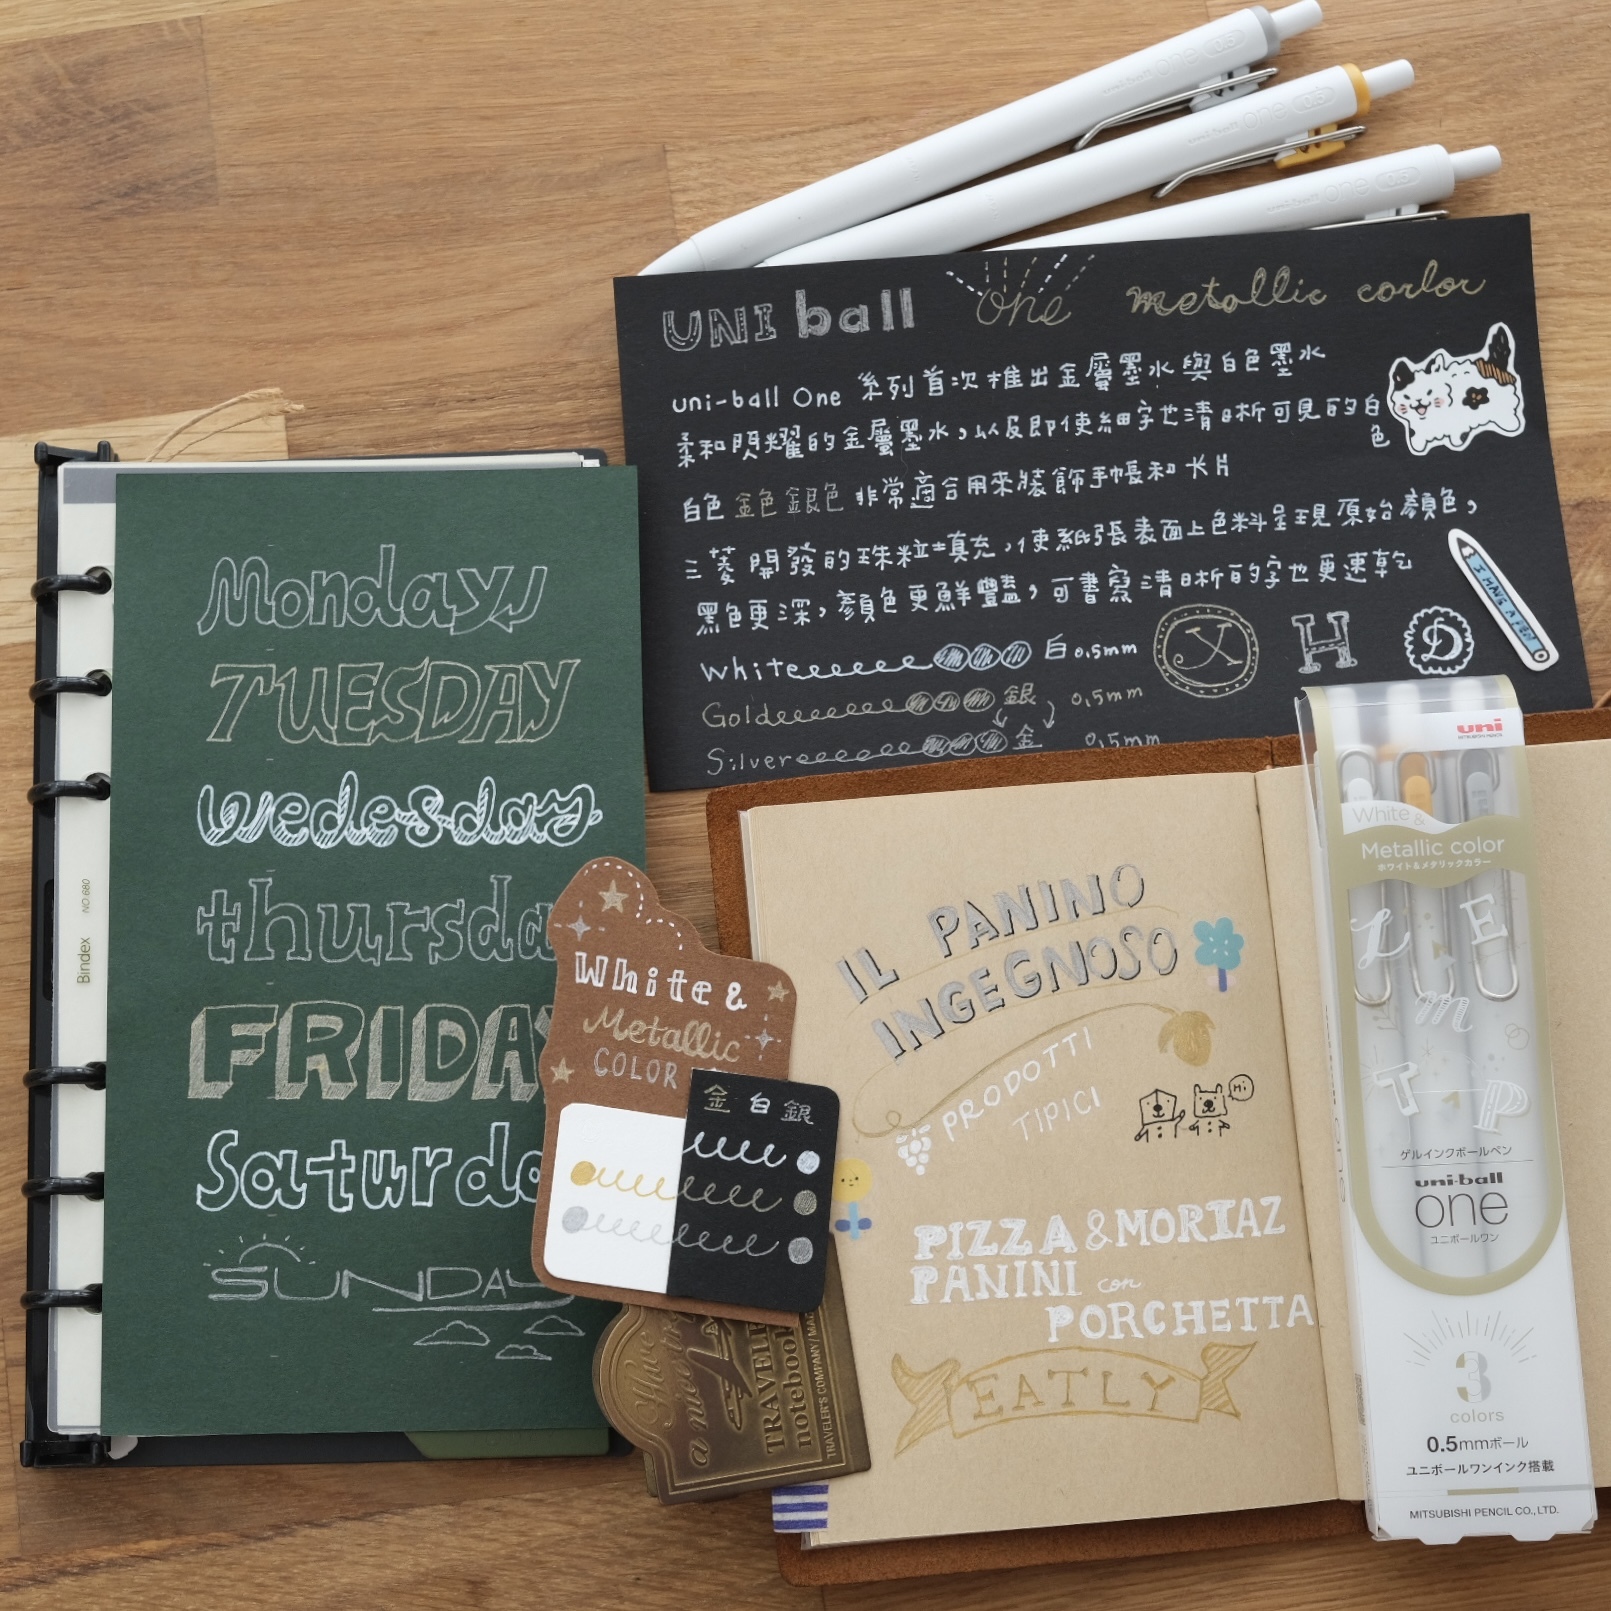 uni-ball one 0.5
uni-ball one 0.5
uni-ball one 0.5
UNI ball one metallic corlor
uni-ball One 系列首次推出金屬墨水與白色墨水
柔和閃耀的金屬墨水，以及即使細字也清晰可見的白
色
白色 金色 銀色 非常適合用來裝飾手帳和卡片
三菱開發的珠粒填充，使紙張表面上色料呈現原始顏色，
黑色更深，顏色更鮮豔，可書寫清晰的字也更速乾
White 白 0.5mm
Gold 銀 0.5mm
Silver 金 0.5mm
X H D
I HAVE A PEN
Monday
TUESDAY
Wedesday
thursda
FRIDAY
Saturda
SUNDAY
Bindex NO.680
White &
Metallic
COLOR
金 白 銀
TRAVELER'S COMPANY
notebook
IL PANINO
INGEGNOSO
PRODOTTI
TIPICI
Hi
PIZZA & MORTAZ
PANINI con
PORCHETTA
EATLY
uni
MITSUBISHI PENCIL
White &
Metallic color
ホワイト&メタリックカラー
L E
m
T P
ゲルインクボールペン
uni-ball
one
ユニボールワン
3
colors
0.5mmボール
ユニボールワンインク搭載
MITSUBISHI PENCIL CO., LTD.